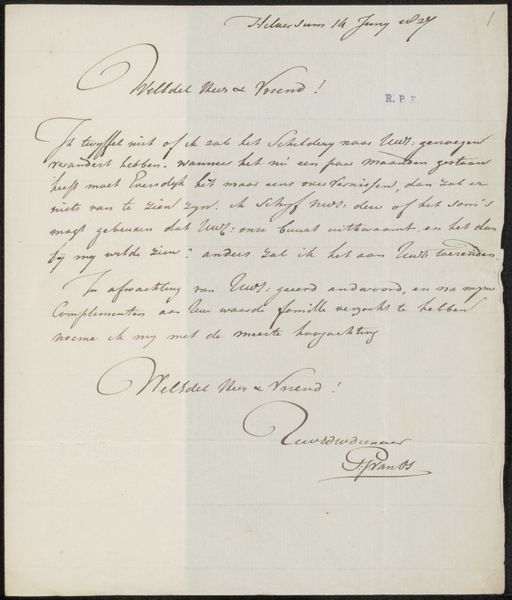 Hilversum 14 Juny 1827
1
WelEdel Heer & Vriend!
R. P. K.
Ik twyffel niet of ik zal het Schildery naar UwE: genoegen
verandert hebben. wanneer het nu een paar maanden gestaan
heeft moet Eversdyk het maar eens oververnissen, dan zal er
niets van te zien zyn. ik Schryf UwE: deze of het Som's
mogt gebeuren dat UwE: onze buurt uitkwaamt, en het dan
by my wilde zien: anders zal ik het aan UwE toezenden.
In afwachting van UwE: geeerd andwoord, en na myne
Complimenten aan Uw waarde familie verzocht te hebben
noeme ik my met de meeste hoogachting
WelEdel Heer & Vriend!
UwEdwdienaar